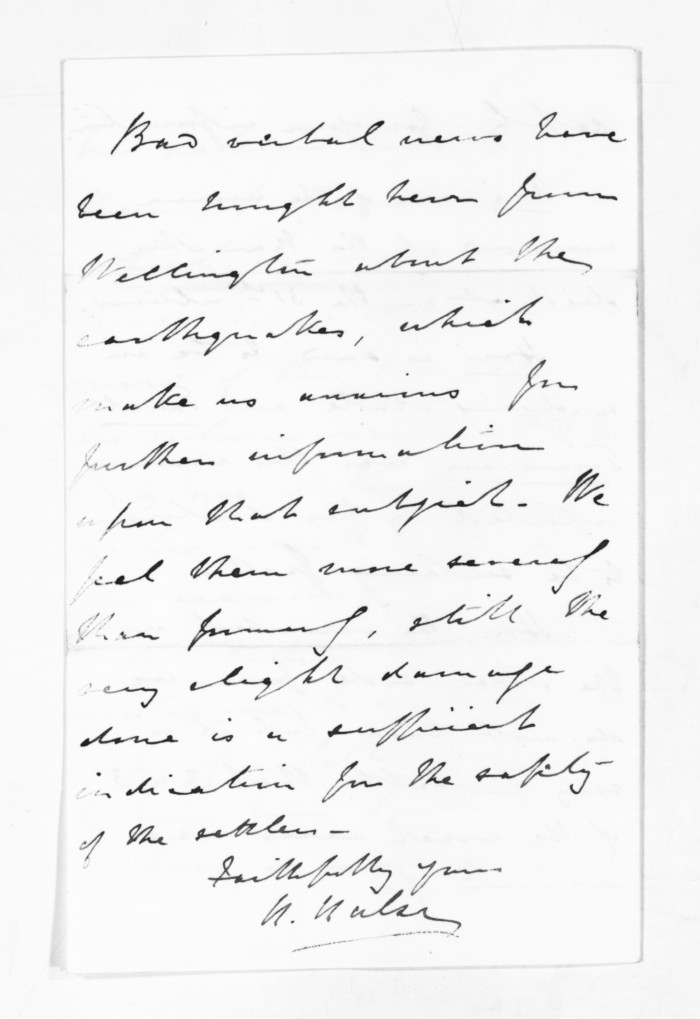 Bad verbal news have
been brought here from
Wellington about the
earthquakes, which
make us anxious for
further information
upon that subject. We
feel them more severely
than formerly, still the
very slight damage
done is a sufficient
indication for the safety
of the settlers -
Faithfully yours
H. Halse